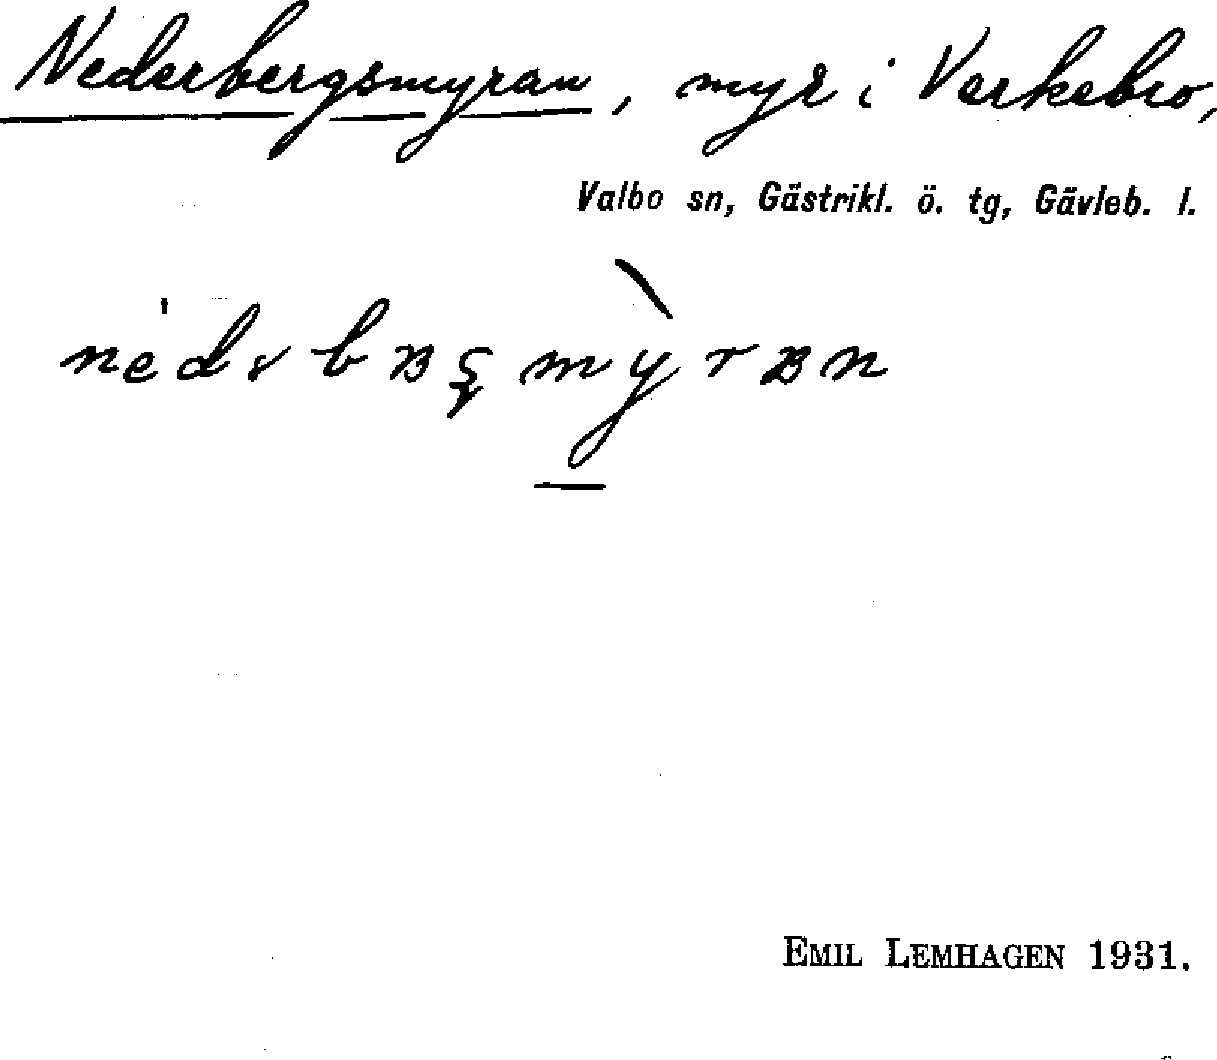 Nederbergsmyran, myr i Verkebro,
Valbo sn, Gästrikl. ö. tg, Gävleb. l.
EMIL LEMHAGEN 1931.